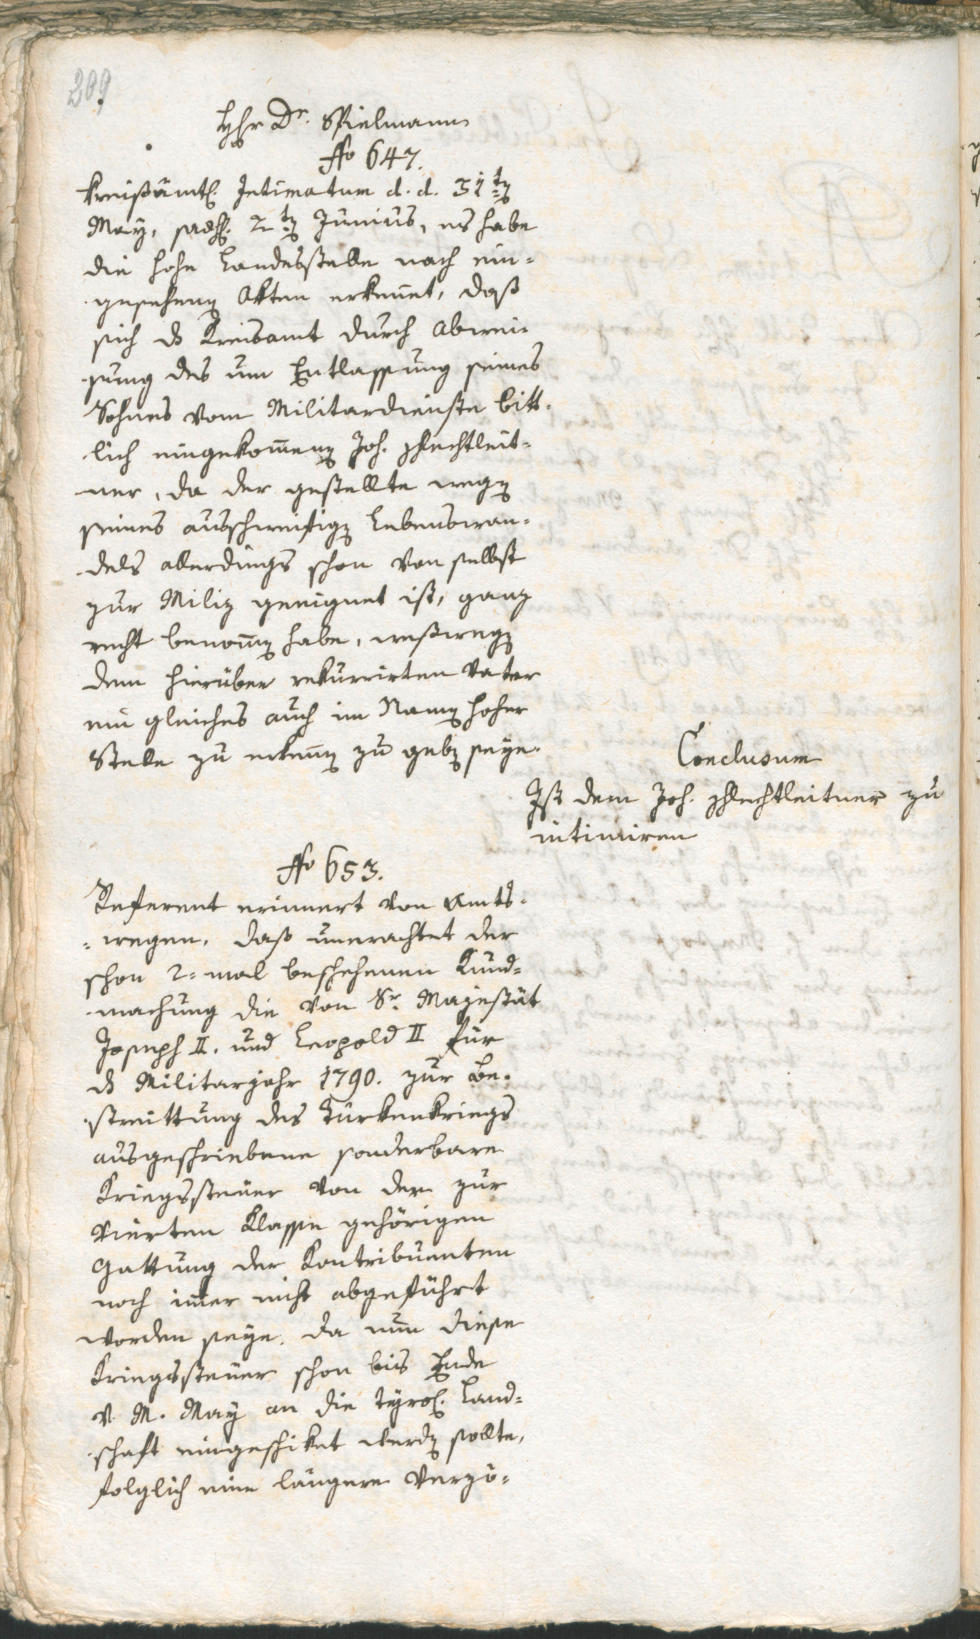 209
Hhr Dr. Spielmann
No 647.
Kreisämtl. Intimatum d. d. 31ten
May, 2ten Junius, es habe
die hohe Landesstelle nach ein-
gesehenen Akten erkennt, daß
sich ds Kreisamt durch Abwei-
sung des um Entlassung seines
Sohnes vom Militardienste bitt-
lich eingekommenen Joh. Schlechtleit-
ner, da der gestellte wegen
seines ausschweifigen Lebenswan-
dels allerdings schon von selbst
zur Miliz geeignet ist, ganz
recht benommen habe, weßwegen
dem hierüber rekurrirten Vater
ein gleiches auch im Namen hoher
Stelle zu erkennen zu geben seye.
Conclusum
Ist dem Joh. Schlechtleitner zu
intimiren
No 653.
Referent erinnert von Amts-
wegen, daß unerachtet der
schon 2-mal beschehenen Kund-
machung die von Sr. Majestät
Joseph II. und Leopold II für
ds Militarjahr 1790. zur Be-
streittung des Türkenkriegs
ausgeschriebene sonderbare
Kriegssteuer von der zur
vierten Klasse gehörigen
Gattung der Kontribuenten
noch immer nicht abgeführt
worden seye. da nun diese
Kriegssteuer schon bis Ende
v. M. May an die tyrol. Land-
schaft eingeschiket werden sollte,
folglich eine längere Verzö-